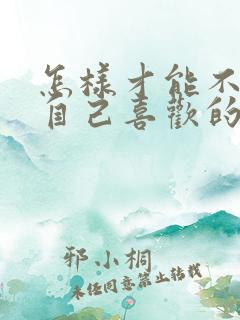 怎樣才能不
自己喜歡的
邪小桐
未任同意禁止转载